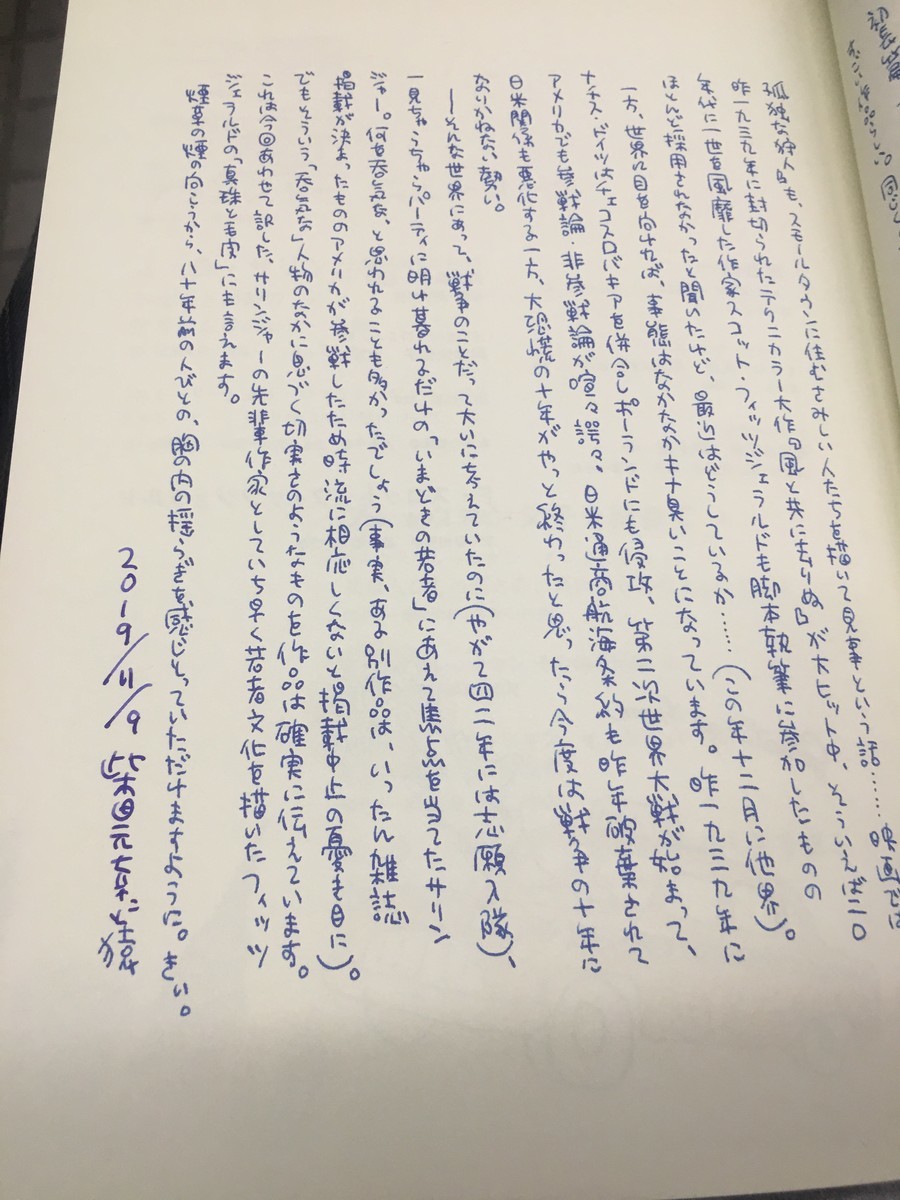 初長篇
同じく
孤独な狩人』も、スモールタウンに住むさみしい人たちを描いて見事という話……映画では
昨一九三九年に封切られたテクニカラー大作『風と共に去りぬ』が大ヒット中、そういえば二〇
年代に一世を風靡した作家スコット・フィッツジェラルドも脚本執筆に参加したものの
ほとんど採用されなかったと聞いたけど、最近はどうしているか……(この年十二月に他界)。
一方、世界に目を向ければ、事態はなかなかキナ臭いことになっています。昨一九三九年に
ナチス・ドイツはチェコスロバキアを併合しポーランドにも侵攻、第二次世界大戦が始まって、
アメリカでも参戦論・非参戦論が喧々諤々。日米通商航海条約も昨年破棄されて
日米関係も悪化する一方、大恐慌の十年がやっと終わったと思ったら今度は戦争の十年に
なりかねない勢い。
―そんな世界にあって、戦争のことだって大いに考えていたのに(やがて四二年には志願入隊)、
一見ちゃらちゃらパーティに明け暮れるだけの「いまどきの若者」にあえて焦点を当てたサリン
ジャー。何を呑気な、と思われることも多かったでしょう(事実、ある別作品は、いったん雑誌
掲載が決まったもののアメリカが参戦したため時流に相応しくないと掲載中止の憂き目に)。
でもそういう「呑気な」人物のなかに息づく切実さのようなものを作品は確実に伝えています。
これは今回あわせて訳した、サリンジャーの先輩作家としていち早く若者文化を描いたフィッツ
ジェラルドの「真珠と毛皮」にも言えます。
煙草の煙の向こうから、八十年前の人びとの、胸の内の揺らぎを感じとっていただけますように。きい。
2019/11/9 柴田元幸と猿